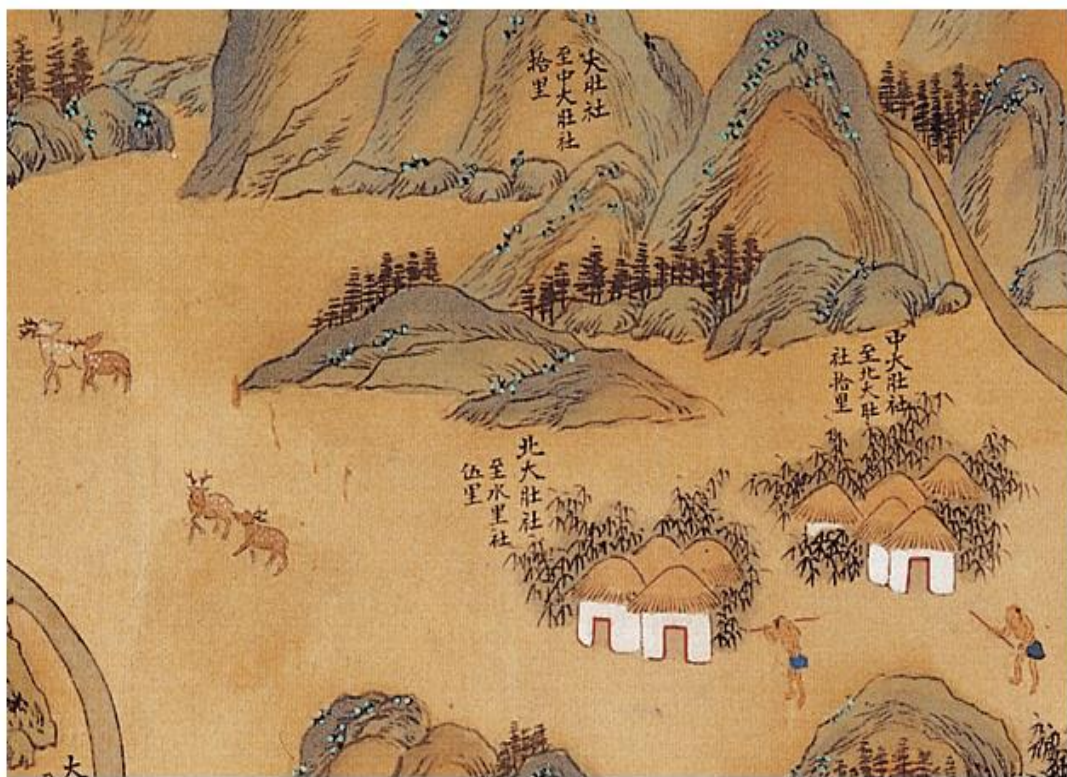 大肚社
至中大肚社
拾里
中大肚社
至北大肚
社拾里
北大肚社
至水里社
伍里
大